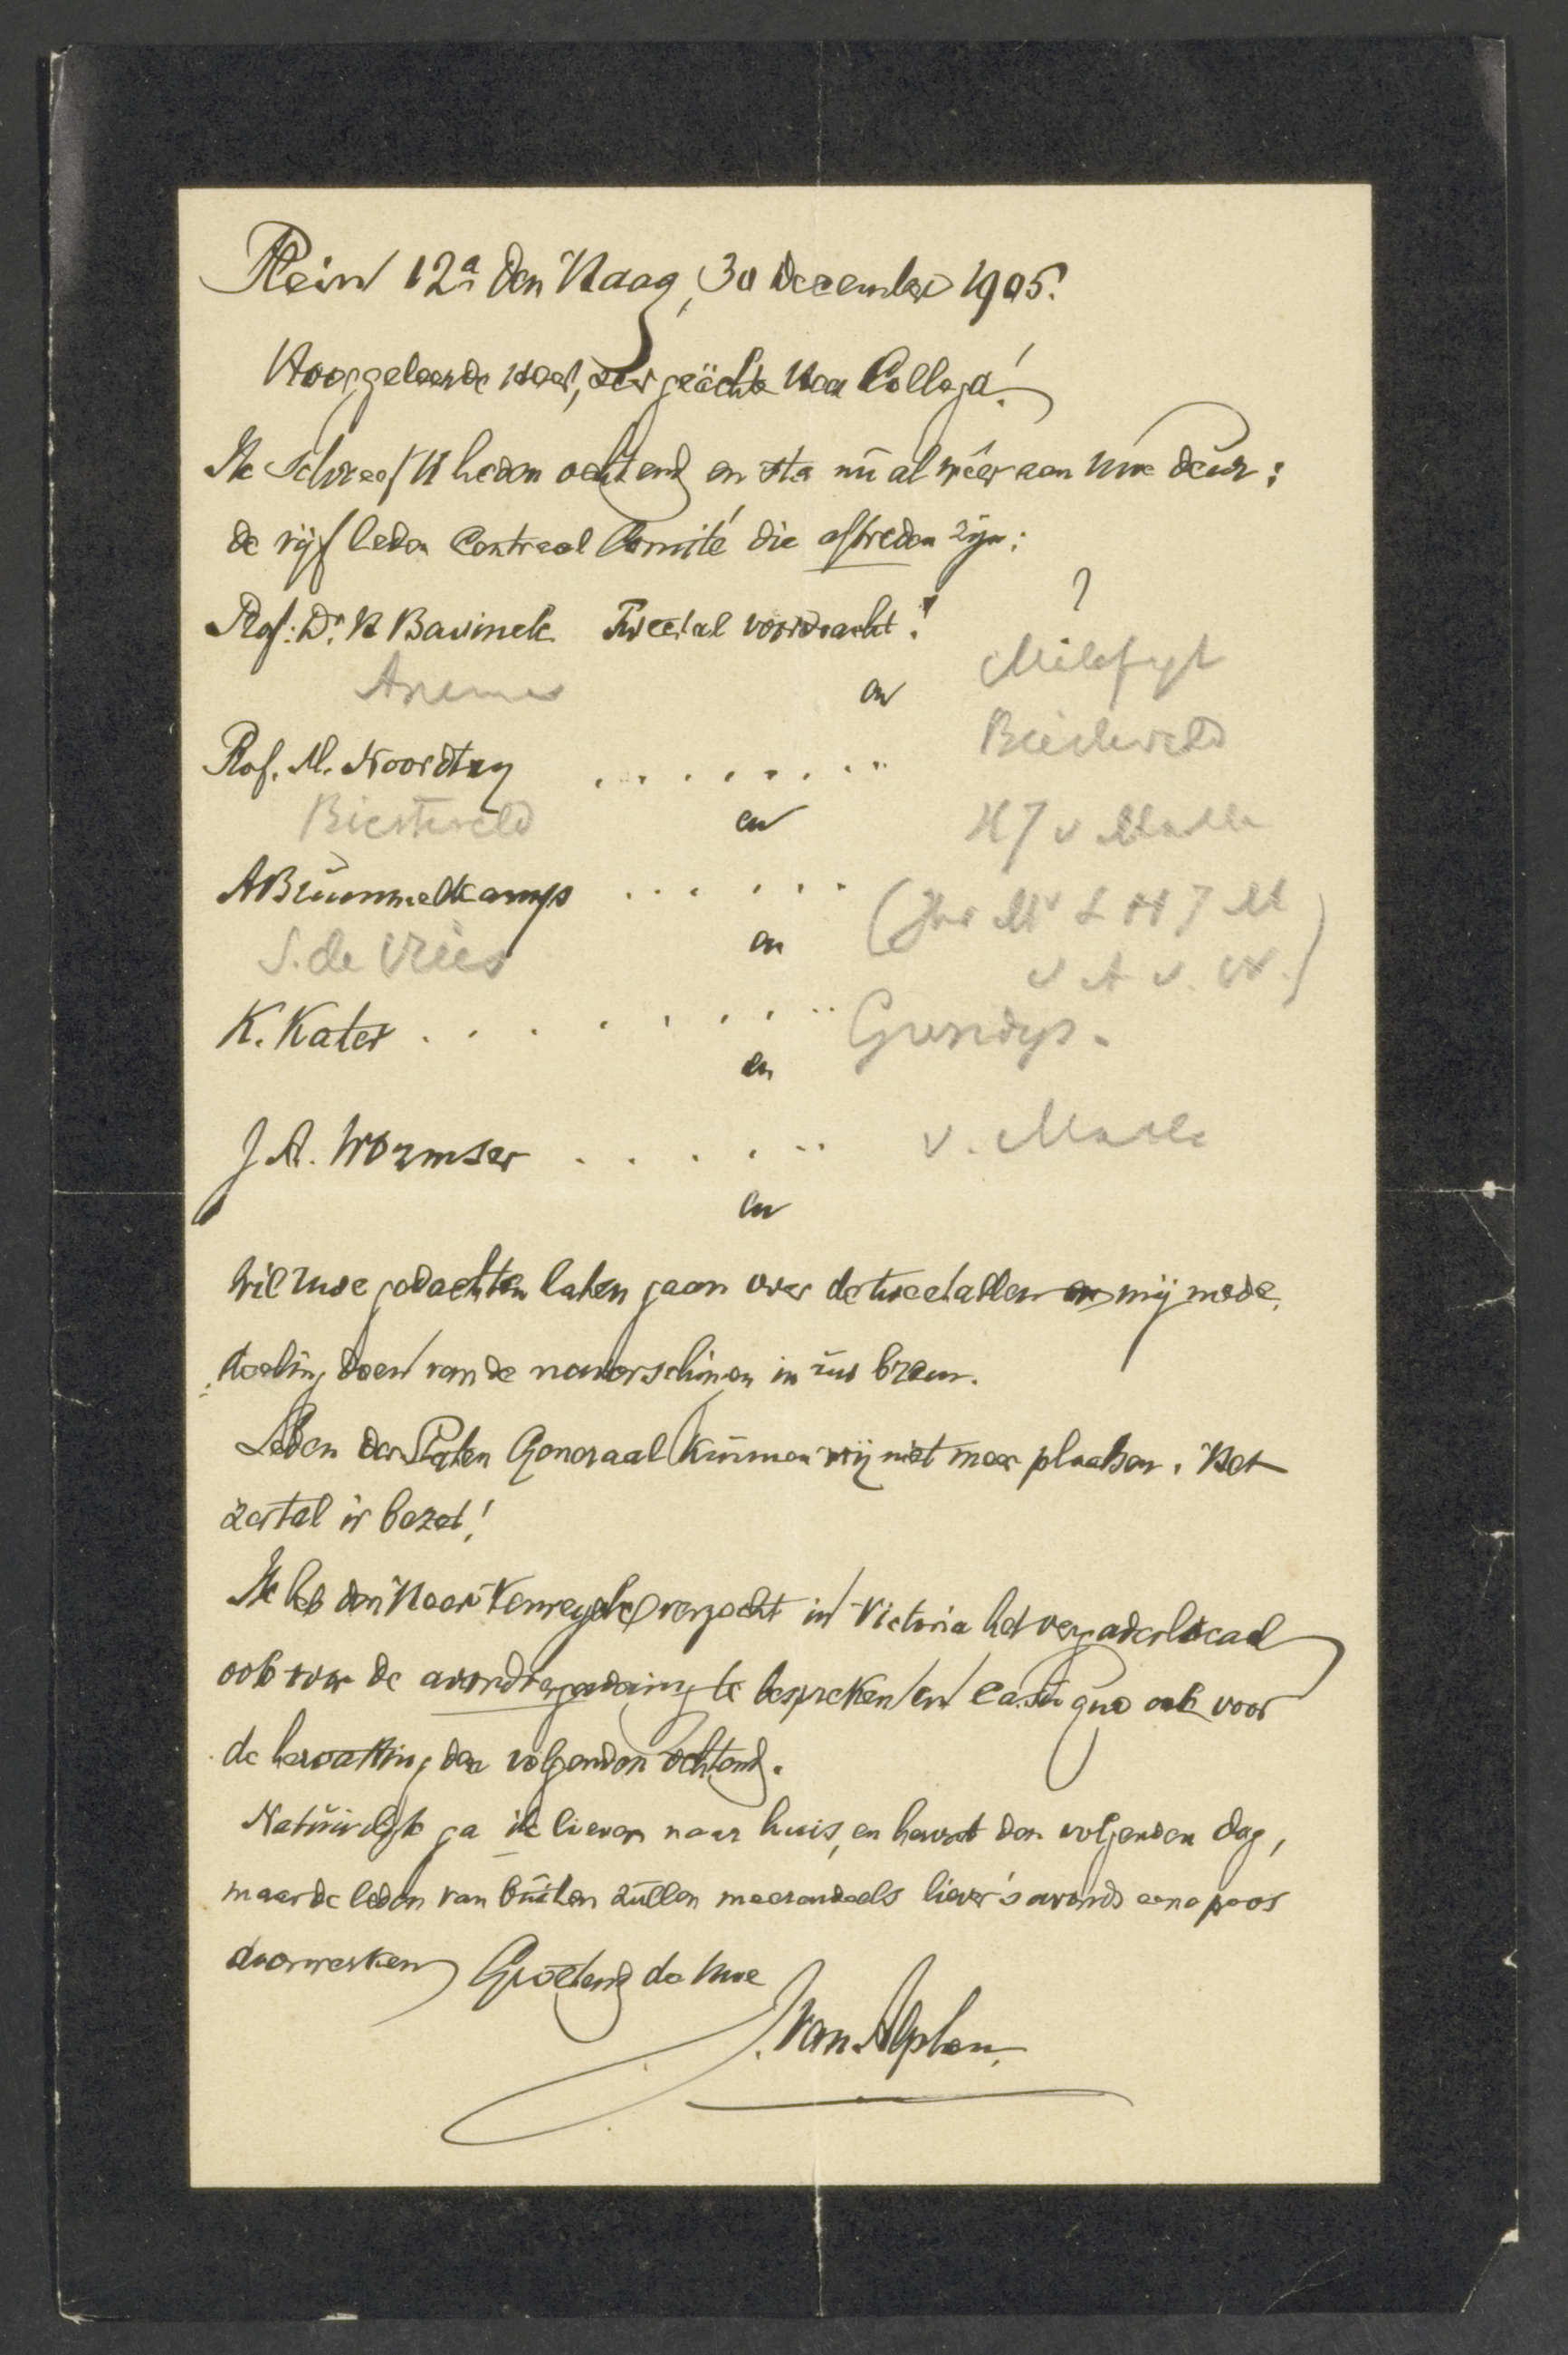 Plein 12a den Haag, 30 December 1905.
Hooggeleerde Heer, zeer geächte Heer Collega!
Ik schreef U heden ochtend en sta nu al wéer aan Uwe deur:
de vijf leden Centraal Comité die aftreden zijn:
Prof: Dr. H Bavinck Tweetal voordracht! ?
Anema en
Prof. M. Noordtzy . . . . . . . . Biesterveld
Biesterveld en
ABrummelkamp . . . . . .
S. de Vries en
K. Kater . . . . . . . .
en
J A. Wormser . . . . . .
en
Wil Uwe gedachten laten gaan over de tweetallen en mij mede
deeling doen van de
Leden der Staten Generaal kunnen wij niet meer plaatsen. Het
zestal is bezet!
Ik heb den Heer verzocht in Victoria het vergaderlocaal
ook voor de avondvergadering te bespreken en casu quo ook voor
de hervatting den volgenden ochtend.
Natuurlijk ga ik liever naar huis, en hervat den volgenden dag,
maar de leden van buiten zullen meerendeels liever 's avonds eene poos
doorwerken Groetend de Uwe
van Alphen.